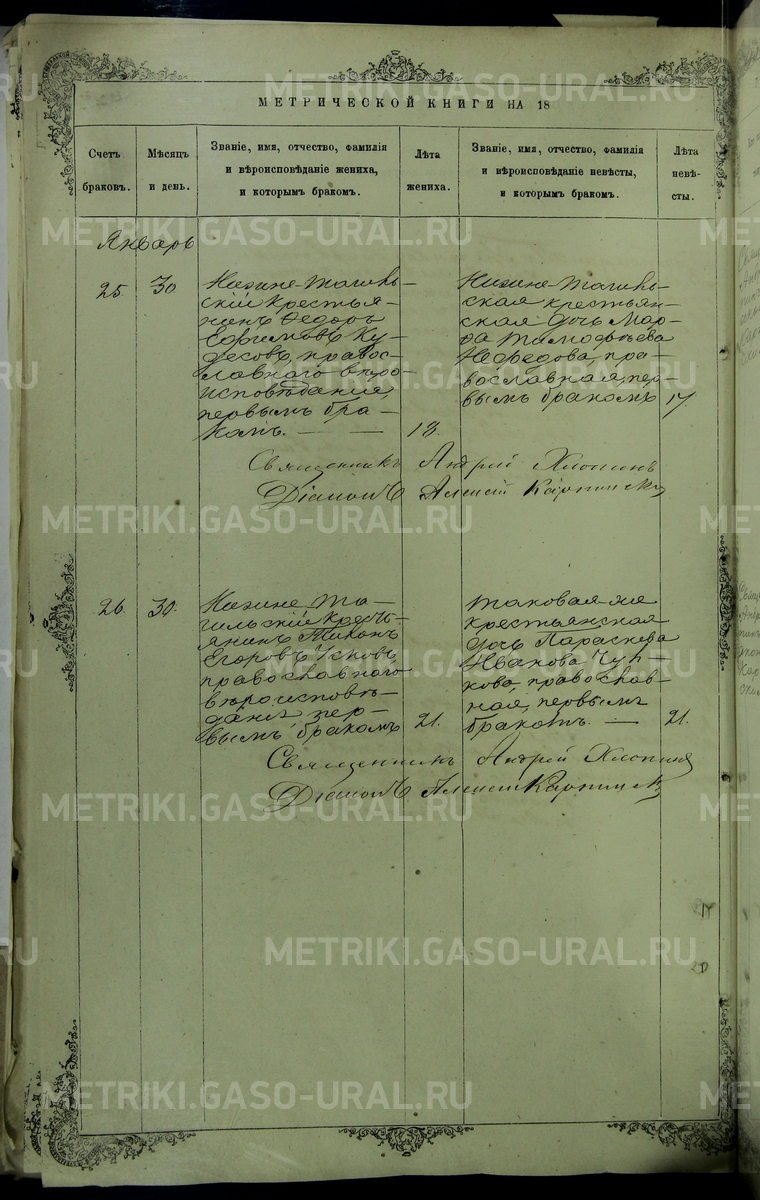 МЕТРИЧЕСКОЙ КНИГИ НА 18
Счетъ браковъ.
Мѣсяцъ и день.
Званіе, имя, отчество, фамилія
и вѣроисповѣданіе жениха,
и которымъ бракомъ.
Лѣта жениха.
Званіе, имя, отчество, фамилія
и вѣроисповѣданіе невѣсты,
и которымъ бракомъ.
Лѣта невѣ-
сты.
Январь
25.
30
Нижне-Тагиль-
скій крестья-
нинъ Ѳедоръ
Ку-
десовъ, правос-
лавнаго вѣро-
исповѣданія,
первымъ бра-
комъ.
18.
Нижне-Тагиль-
ская крестьян-
ская дочь Мар-
ѳа Тимоѳѣева
пра-
вославная, пер-
вымъ бракомъ
17
Священникъ Андрей Хлопинъ
Діаконъ Алексій
26.
30.
Нижне-Та-
гильскій кресть-
янинъ Тихонъ
Егоровъ Усковъ,
православнаго
вѣроисповѣ-
данія, пер-
вымъ бракомъ
21.
Таковая-же
крестьянская
дочь Параскева
Иванова Чуп-
кова, православ-
ная, первымъ
бракомъ.
21.
Священникъ Андрей Хлопинъ
Діаконъ Алексій
METRIKI.GASO-URAL.RU